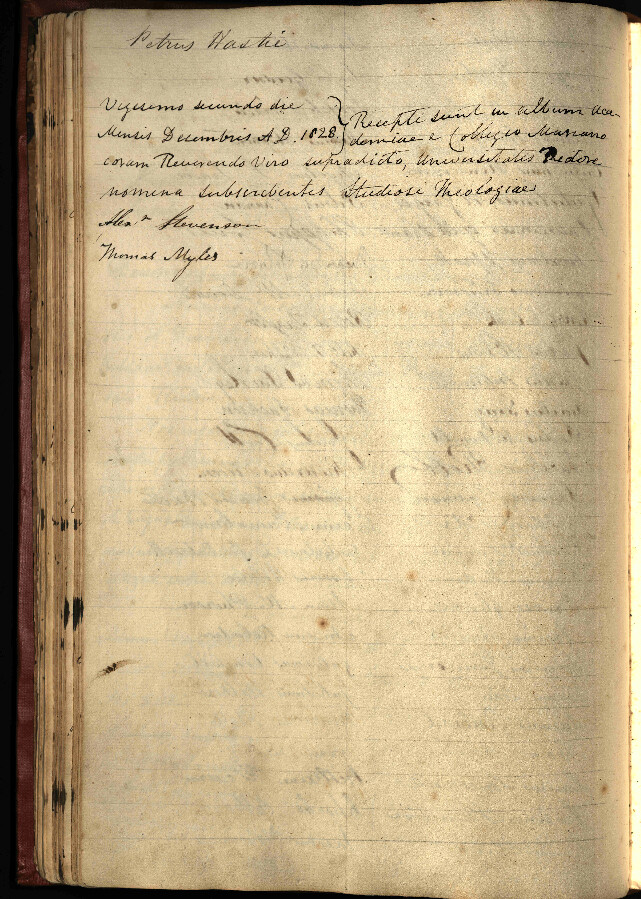 Petrus Hastie
Vigesimo secundo die
Mensis Decembris A.D. 1828.
Recepti sunt in album Aca-
demiae e Collegio Mariano
coram Reverendo Viro supradicto, Universitatis Rectore
nomina subscribentes Studiosi Theologiae
Alexr Stevenson
Thomas Myles